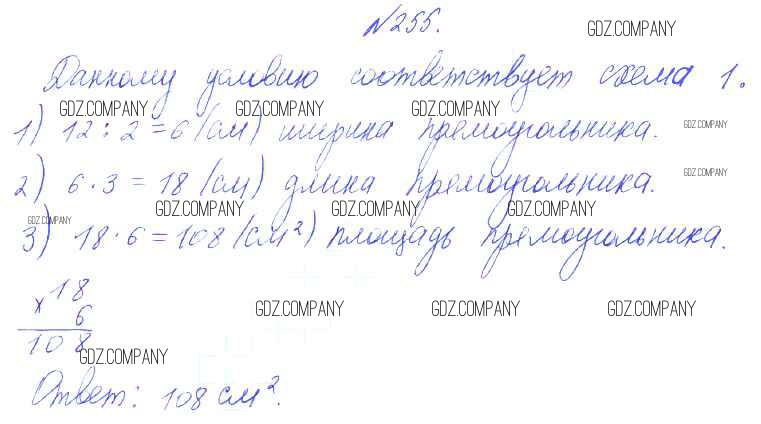 №255.
GDZ.COMPANY
Данному условию соответствует схема 1.
GDZ.COMPANY GDZ.COMPANY GDZ.COMPANY
1) 12 : 2 = 6 (см) ширина прямоугольника.
GDZ.COMPANY
GDZ.COMPANY
2) 6 · 3 = 18 (см) длина прямоугольника.
GDZ.COMPANY GDZ.COMPANY GDZ.COMPANY
GDZ.COMPANY
3) 18 · 6 = 108 (см²) площадь прямоугольника.
18
× 6
GDZ.COMPANY GDZ.COMPANY GDZ.COMPANY
108
GDZ.COMPANY
Ответ: 108 см².